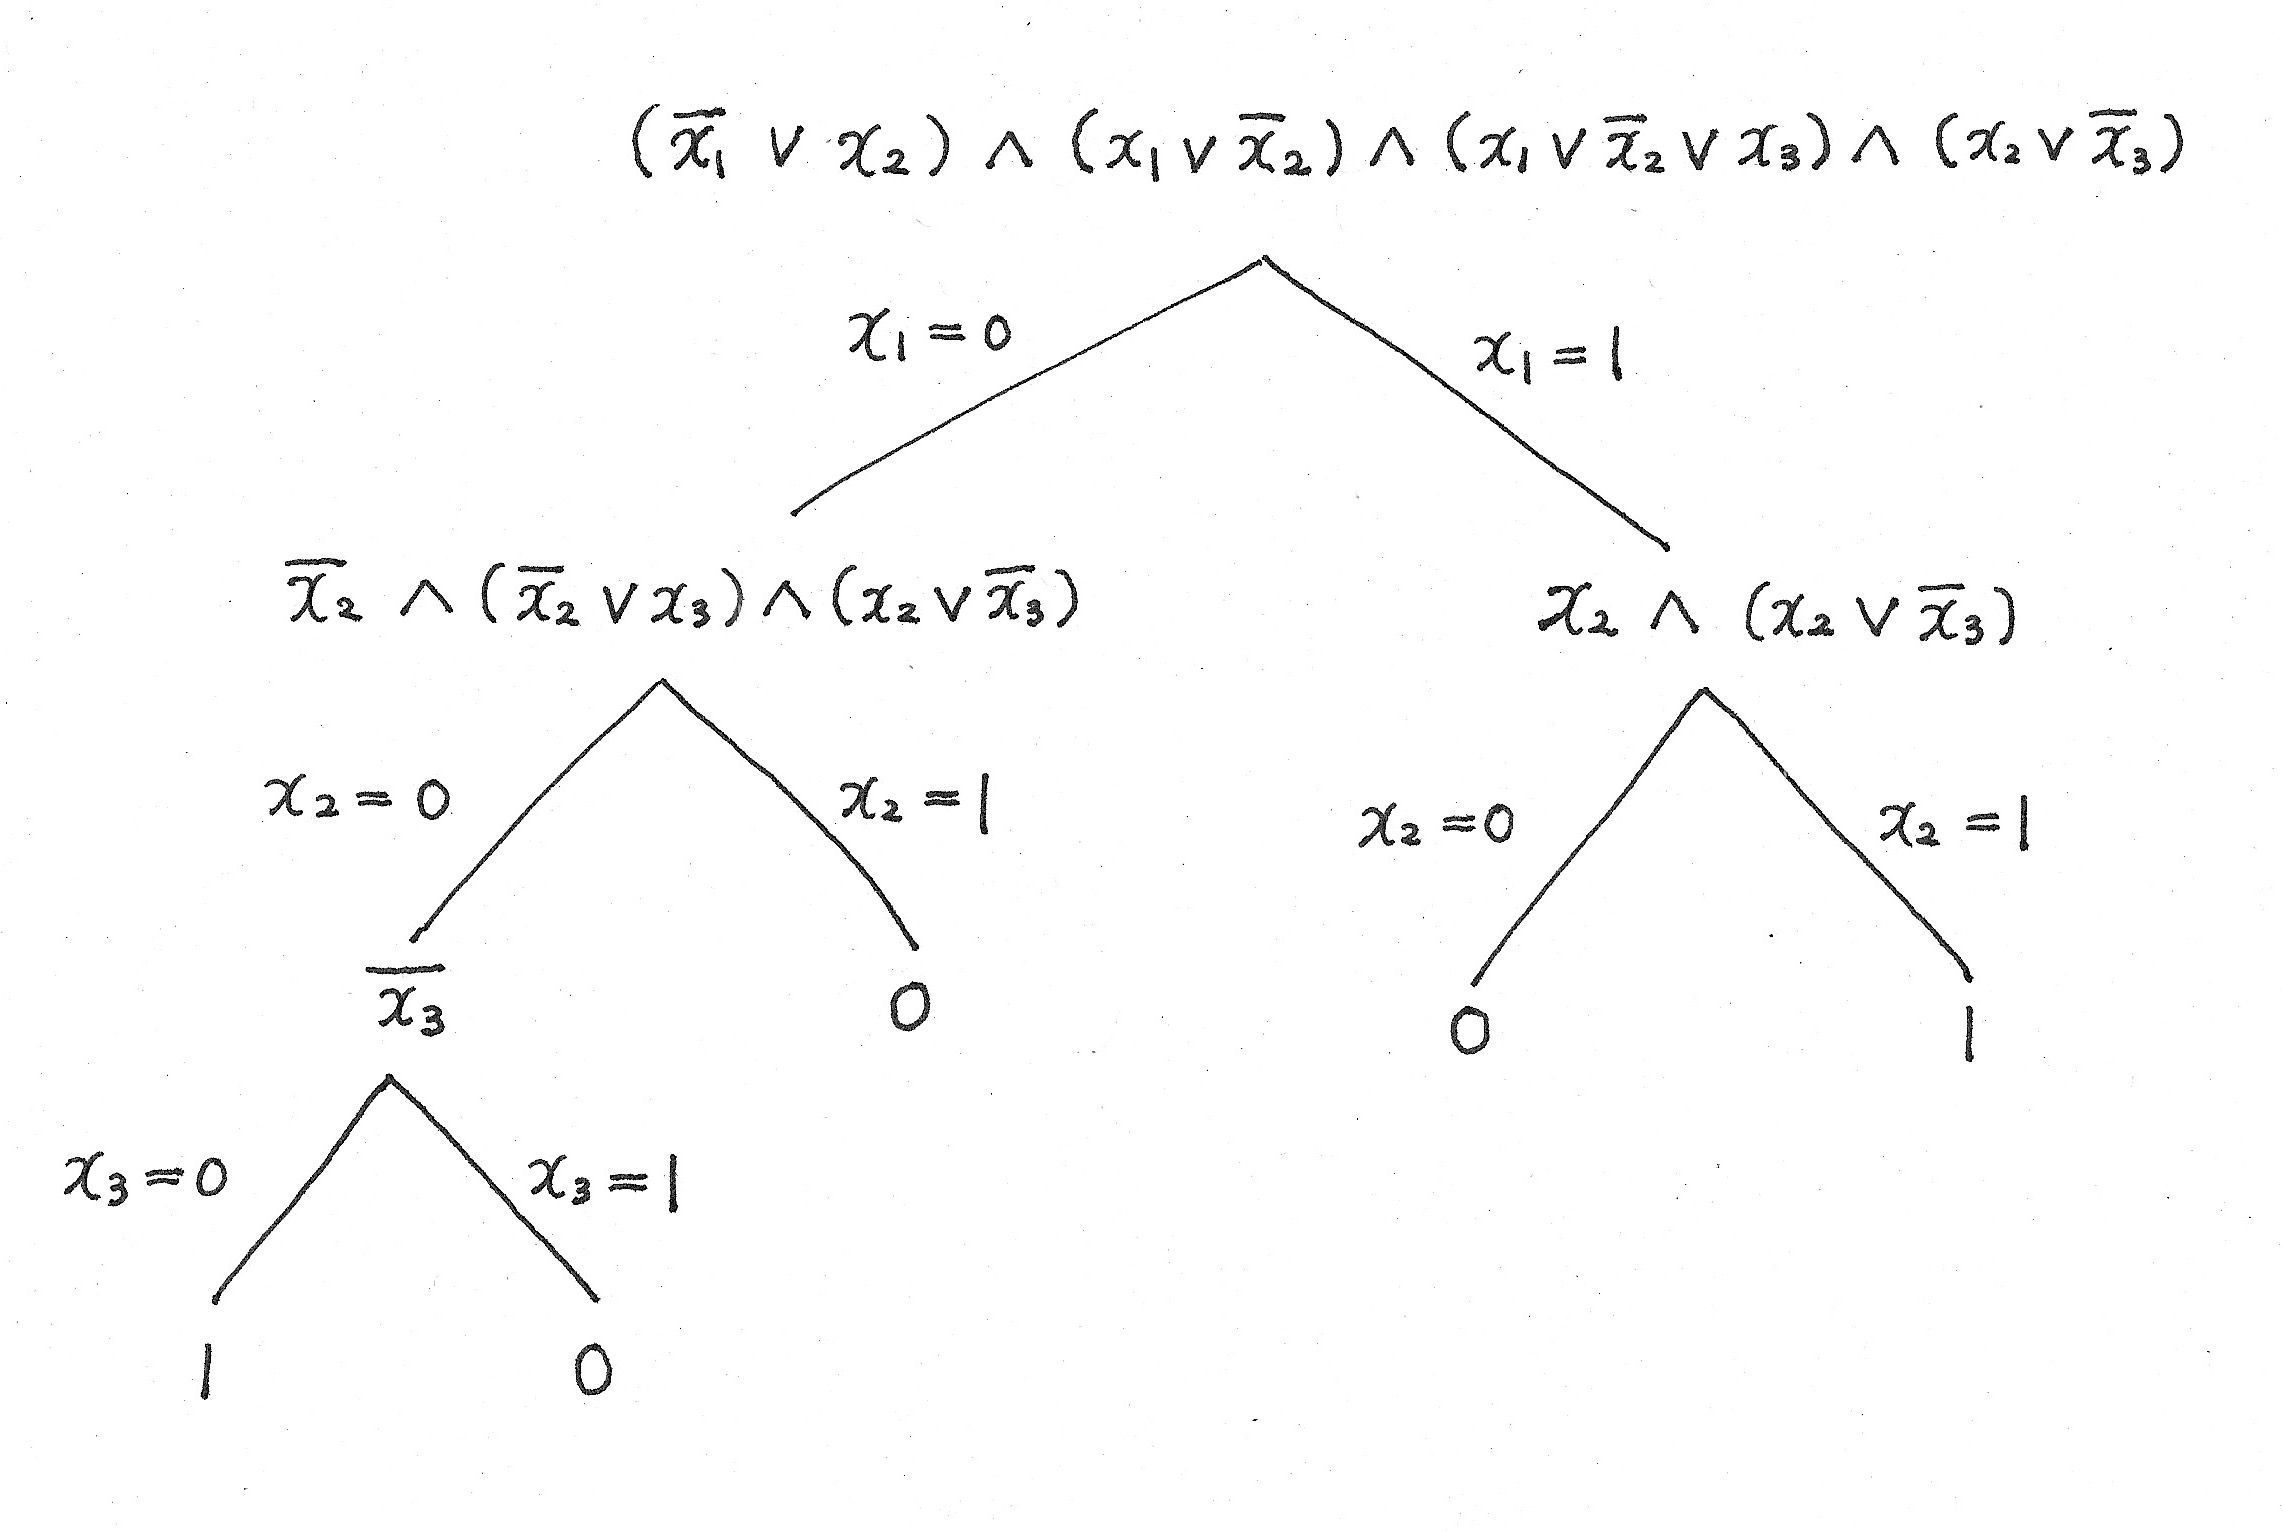 (x̅₁ ∨ x₂) ∧ (x₁ ∨ x̅₂) ∧ (x₁ ∨ x̅₂ ∨ x₃) ∧ (x₂ ∨ x̅₃)
x₁ = 0
x₁ = 1
x̅₂ ∧ (x̅₂ ∨ x₃) ∧ (x₂ ∨ x̅₃)
x₂ ∧ (x₂ ∨ x̅₃)
x₂ = 0
x₂ = 1
x₂ = 0
x₂ = 1
x̅₃
0
0
1
x₃ = 0
x₃ = 1
1
0